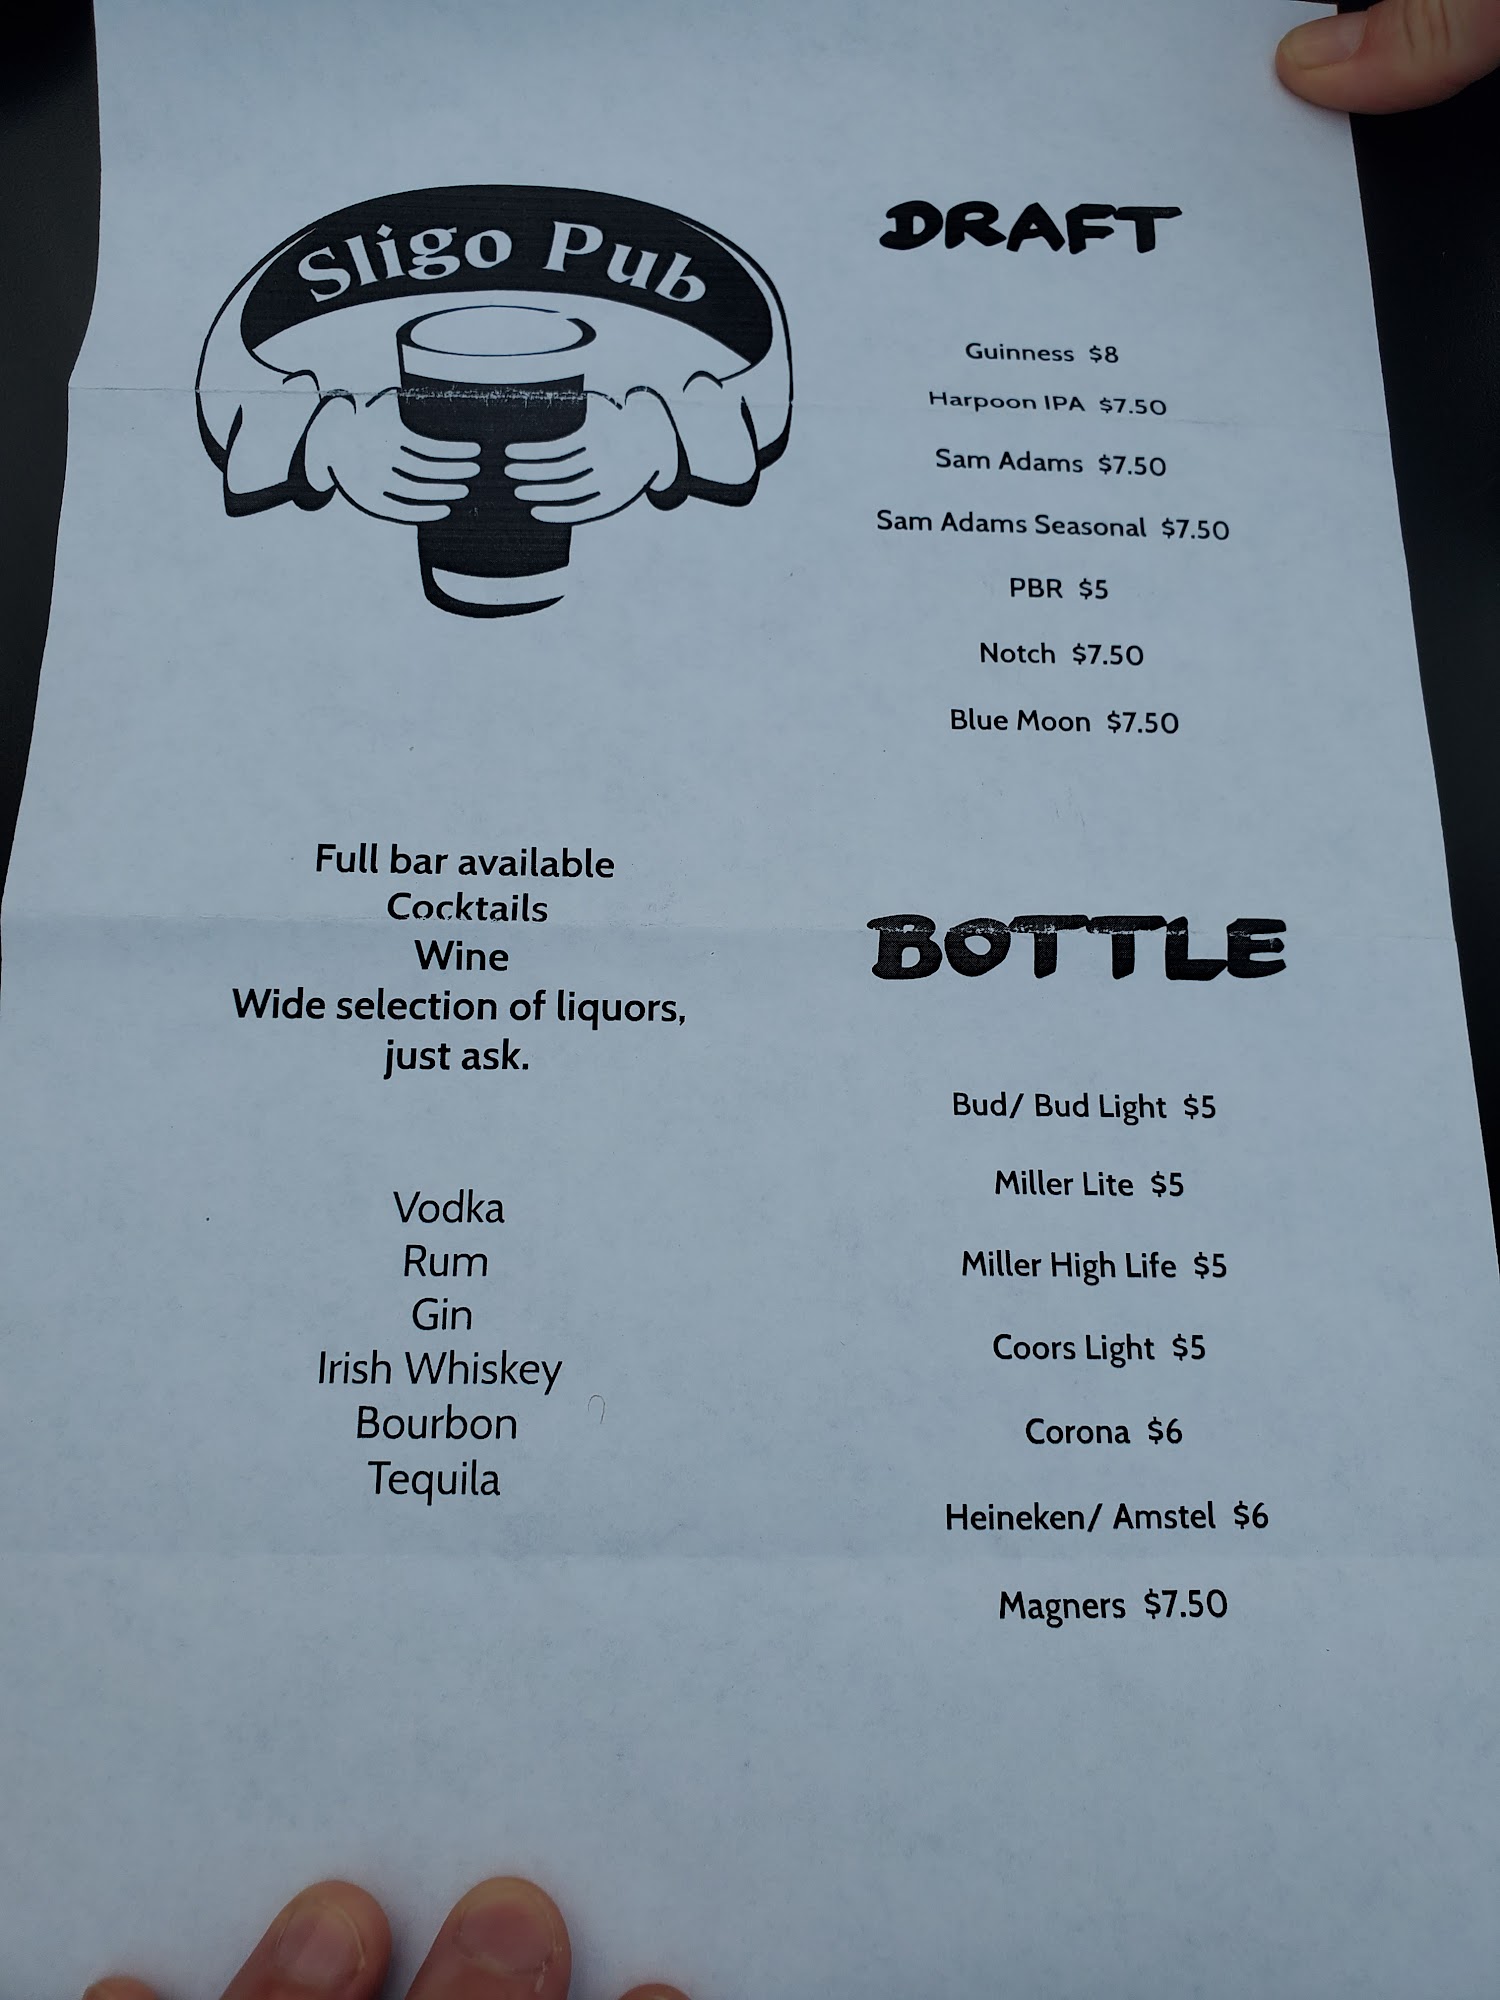 Sligo Pub
DRAFT
Guinness $8
Harpoon IPA $7.50
Sam Adams $7.50
Sam Adams Seasonal $7.50
PBR $5
Notch $7.50
Blue Moon $7.50
Full bar available
Cocktails
Wine
Wide selection of liquors,
just ask.
Vodka
Rum
Gin
Irish Whiskey
Bourbon
Tequila
BOTTLE
Bud/ Bud Light $5
Miller Lite $5
Miller High Life $5
Coors Light $5
Corona $6
Heineken/ Amstel $6
Magners $7.50